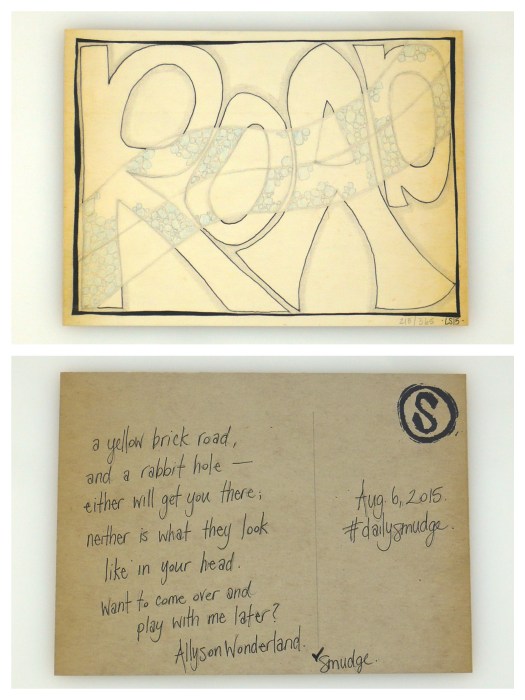 ROAD
218/365 LS15
S
a yellow brick road,
and a rabbit hole —
either will get you there;
neither is what they look
like in your head.
want to come over and
play with me later?
Allyson Wonderland.
Aug. 6, 2015.
#dailysmudge.
smudge.